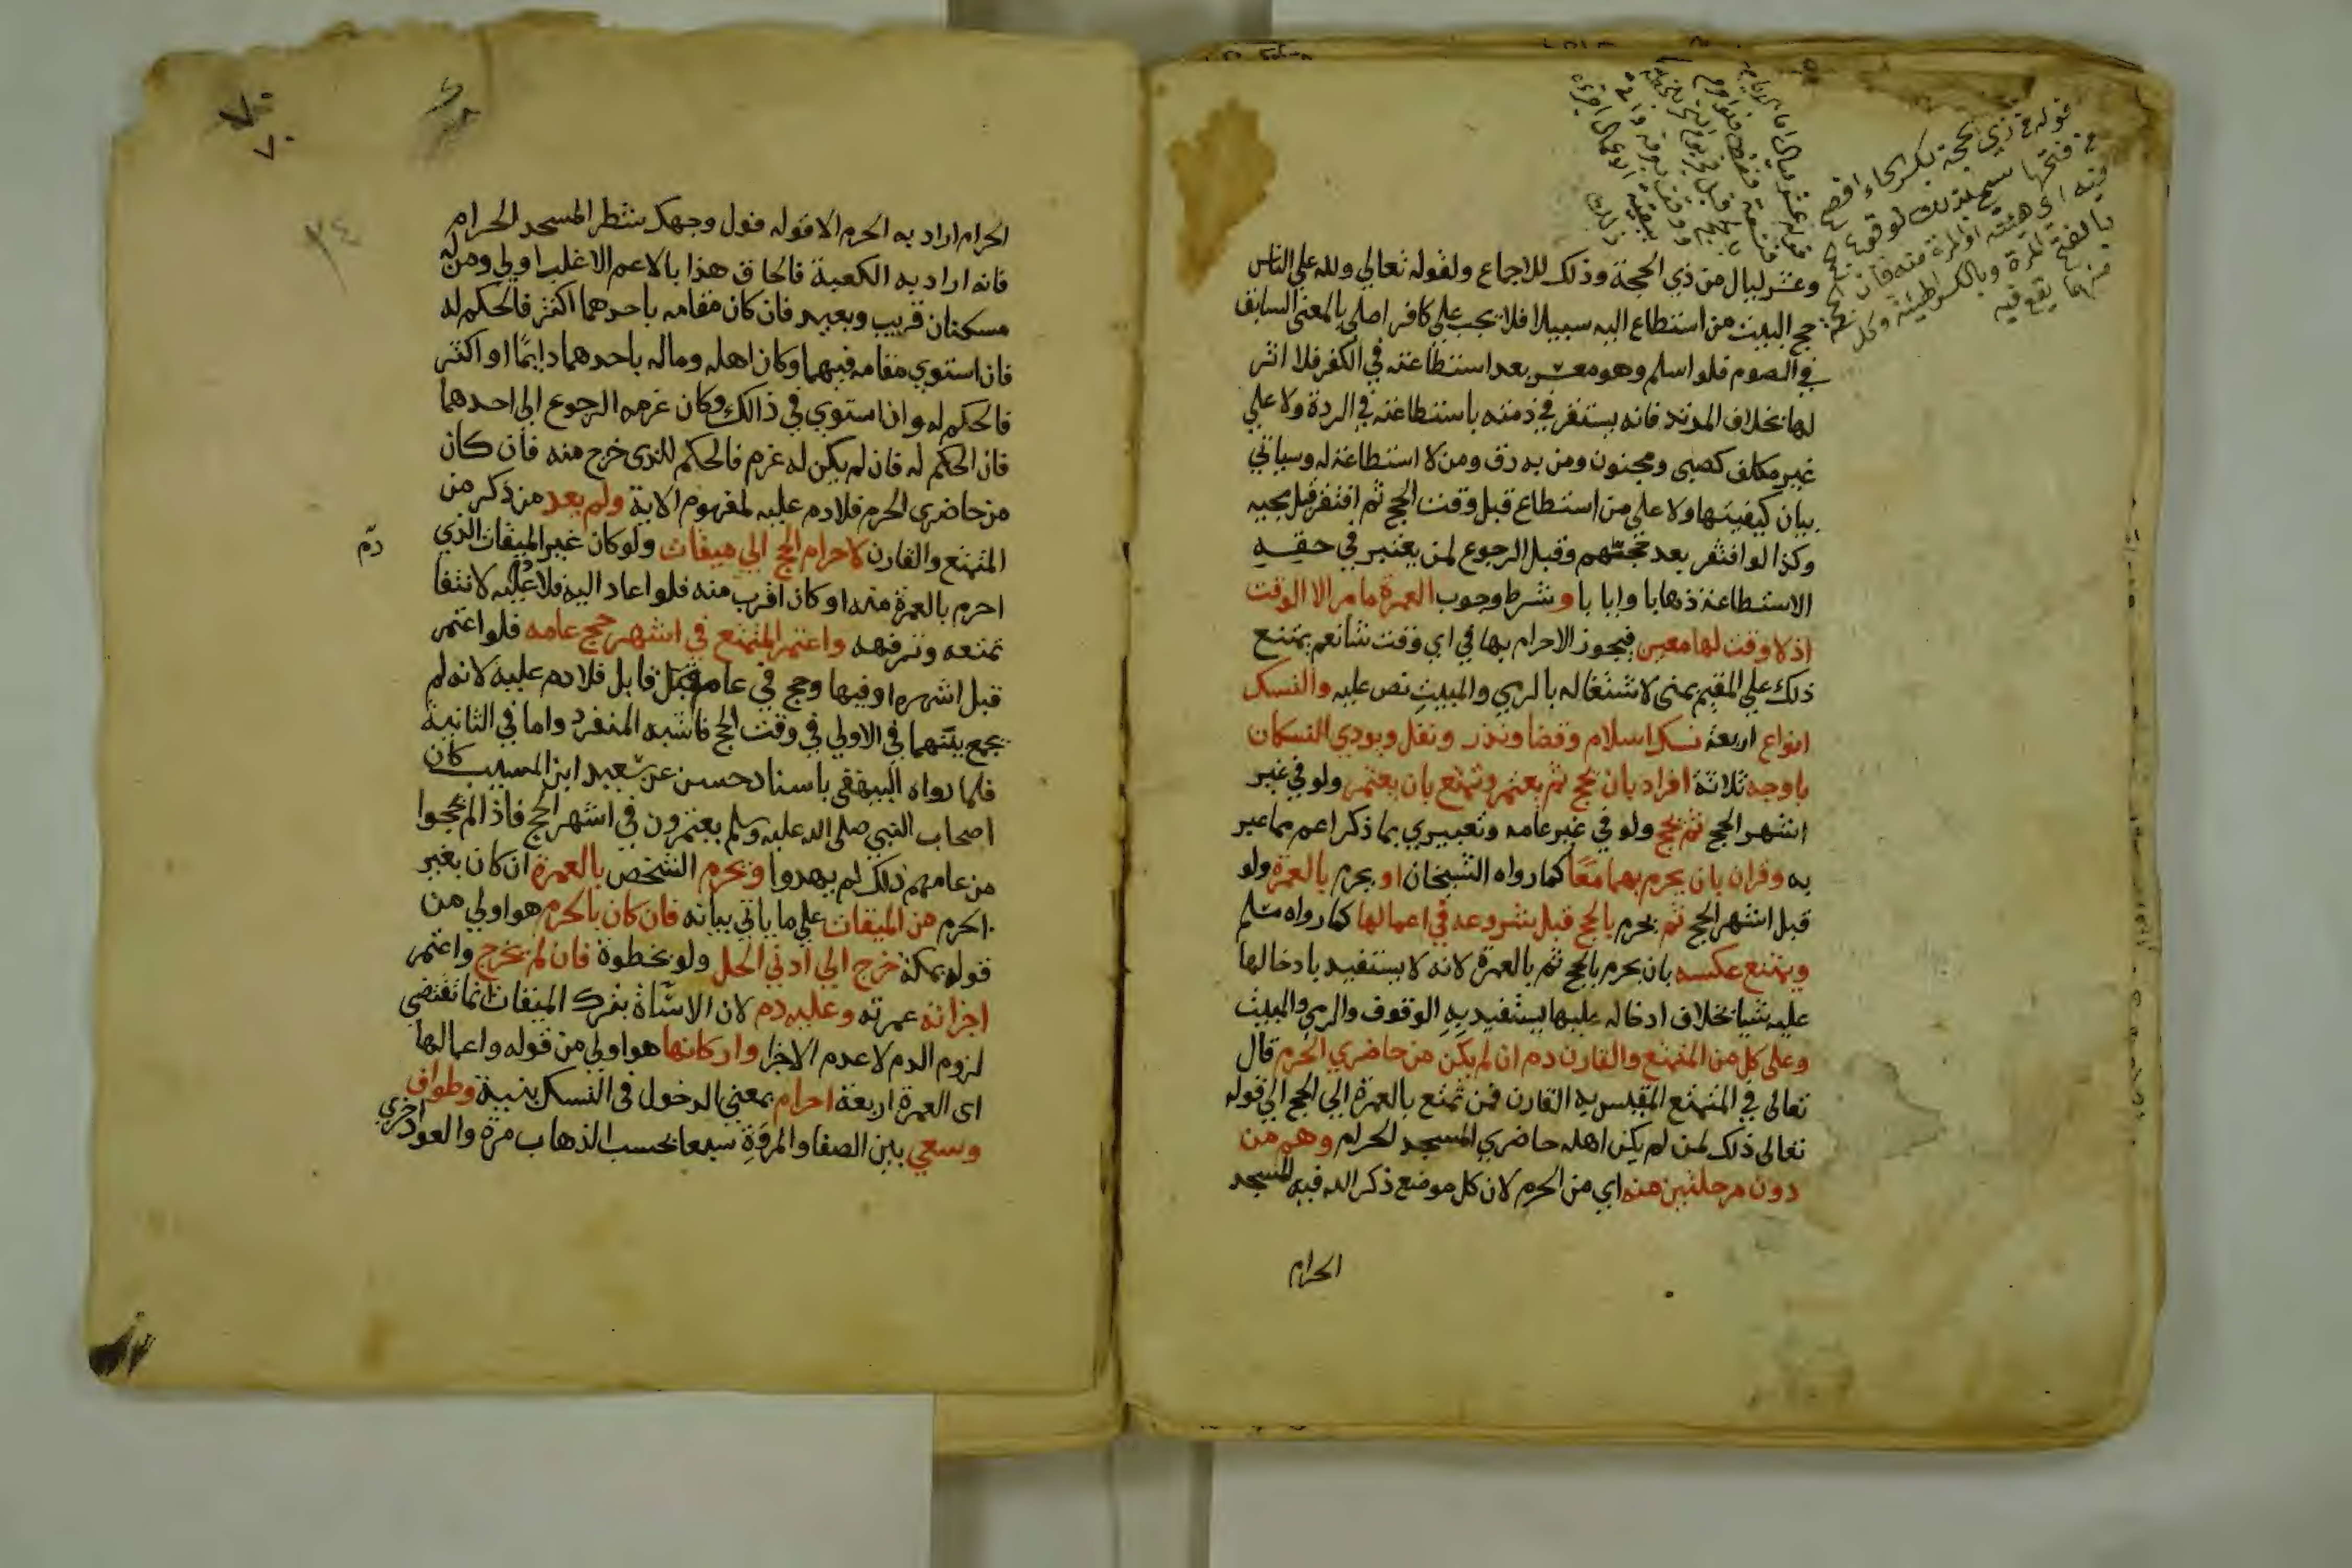 وعشر ليال من ذي الحجة وذلك للاجماع ولقوله تعالي ولله علي الناس
حج البيت من استطاع اليه سبيلا فلا يجب علي كافر اصلي بالمعني السابق
في الصوم فلو اسلم وهو معسر بعد استطاعته في الكفر فلا اثر
لها بخلاف المرتد فانه يستقر في ذمته باستطاعته في الردة ولا علي
غير مكلف كصبي ومجنون ومن به رق ومن لا استطاعة له وسياتي
بيان كيفيتها ولا علي من استطاع قبل وقت الحج ثم افتقر قبل مجيه
وكذا لو افتقر بعد حجتهم وقبل الرجوع لمن يعتبر في حقه
الاستطاعة ذهابا وايابا وشرط وجوب العمرة ما مر الا الوقت
اذ لا وقت لها معين فيجوز الاحرام بها في اي وقت شا نعم يمتنع
ذلك علي المقيم بمني لاشتغاله بالرمي والمبيت نص عليه والنسك
انواع اربعة نسك اسلام وقضا ونذر ونفل ويودي النسكان
باوجه ثلاثة افراد بان يحج ثم يعتمر وتمتع بان يعتمر ولو في غير
اشهر الحج ثم يحج ولو في غير عامه وتعبيري بما ذكر اعم مما عبر
به وقران بان يحرم بهما معا كما رواه الشيخان او يحرم بالعمرة ولو
قبل اشهر الحج ثم يحرم بالحج قبل شروعه في اعمالها كما رواه مسلم
ويمتنع عكسه بان يحرم بالحج ثم بالعمرة لانه لا يستفيد بادخالها
عليه شيا بخلاف ادخاله عليها يستفيد به الوقوف والرمي والمبيت
وعلي كل من المتمتع والقارن دم ان لم يكن من حاضري الحرم قال
تعالي في المتمتع المقيس به القارن فمن تمتع بالعمرة الي الحج الي قوله
تعالي ذلك لمن لم يكن اهله حاضري المسجد الحرام وهم من
دون مرحلتين منه اي من الحرم لان كل موضع ذكر الله فيه المسجد
الحرام
٧٠
٧٠
٣٤
الحرام اراد به الحرم الا قوله فول وجهك شطر المسجد الحرام
فانه اراد به الكعبة فالحاق هذا بالاعم الاغلب اولي ومن له
مسكنان قريب وبعيد فان كان مقامه باحدهما اكثر فالحكم له
فان استوي مقامه فيهما وكان اهله وماله باحدهما دايما او اكثر
فالحكم له وان استوي في ذالك وكان عزمه الرجوع الي احدهما
فان الحكم له فان لم يكن له عزم فالحكم للذي خرج منه فان كان
من حاضري الحرم فلا دم عليه لمفهوم الاية ولم يعد من ذكر من
المتمتع والقارن لاحرام الحج الي ميقات ولو كان غير الميقات الذي
احرم بالعمرة منه او كان اقرب منه فلو اعاد اليه فلا عليه لانتفا
دم
تمتعه وترفهه واعتمر المتمتع في اشهر حج عامه فلو اعتمر
قبل اشهره او فيها وحج في عام قابل فلا دم عليه لانه لم
يجمع بينهما في الاولي في وقت الحج فاشبه المنفرد واما في الثانية
فلما رواه البيهقي باسناد حسن عن سعيد ابن المسيب كان
اصحاب النبي صلي الله عليه وسلم يعتمرون في اشهر الحج فاذا لم يحجوا
من عامهم ذلك لم يهدوا ويحرم الشخص بالعمرة ان كان بغير
الحرم من الميقات علي ما ياتي بيانه فان كان بالحرم هو اولي من
قوله بمكة خرج الي ادني الحل ولو بخطوة فان لم يخرج واعتمر
اجزاته عمرته وعليه دم لان الاساة بترك الميقات انما تقتضي
لزوم الدم لا عدم الاجزا واركانها هو اولي من قوله واعمالها
اي العمرة اربعة احرام بمعني الدخول في النسك بنية وطواف
وسعي بين الصفا والمروة سبعا بحسب الذهاب مرة والعود اخري